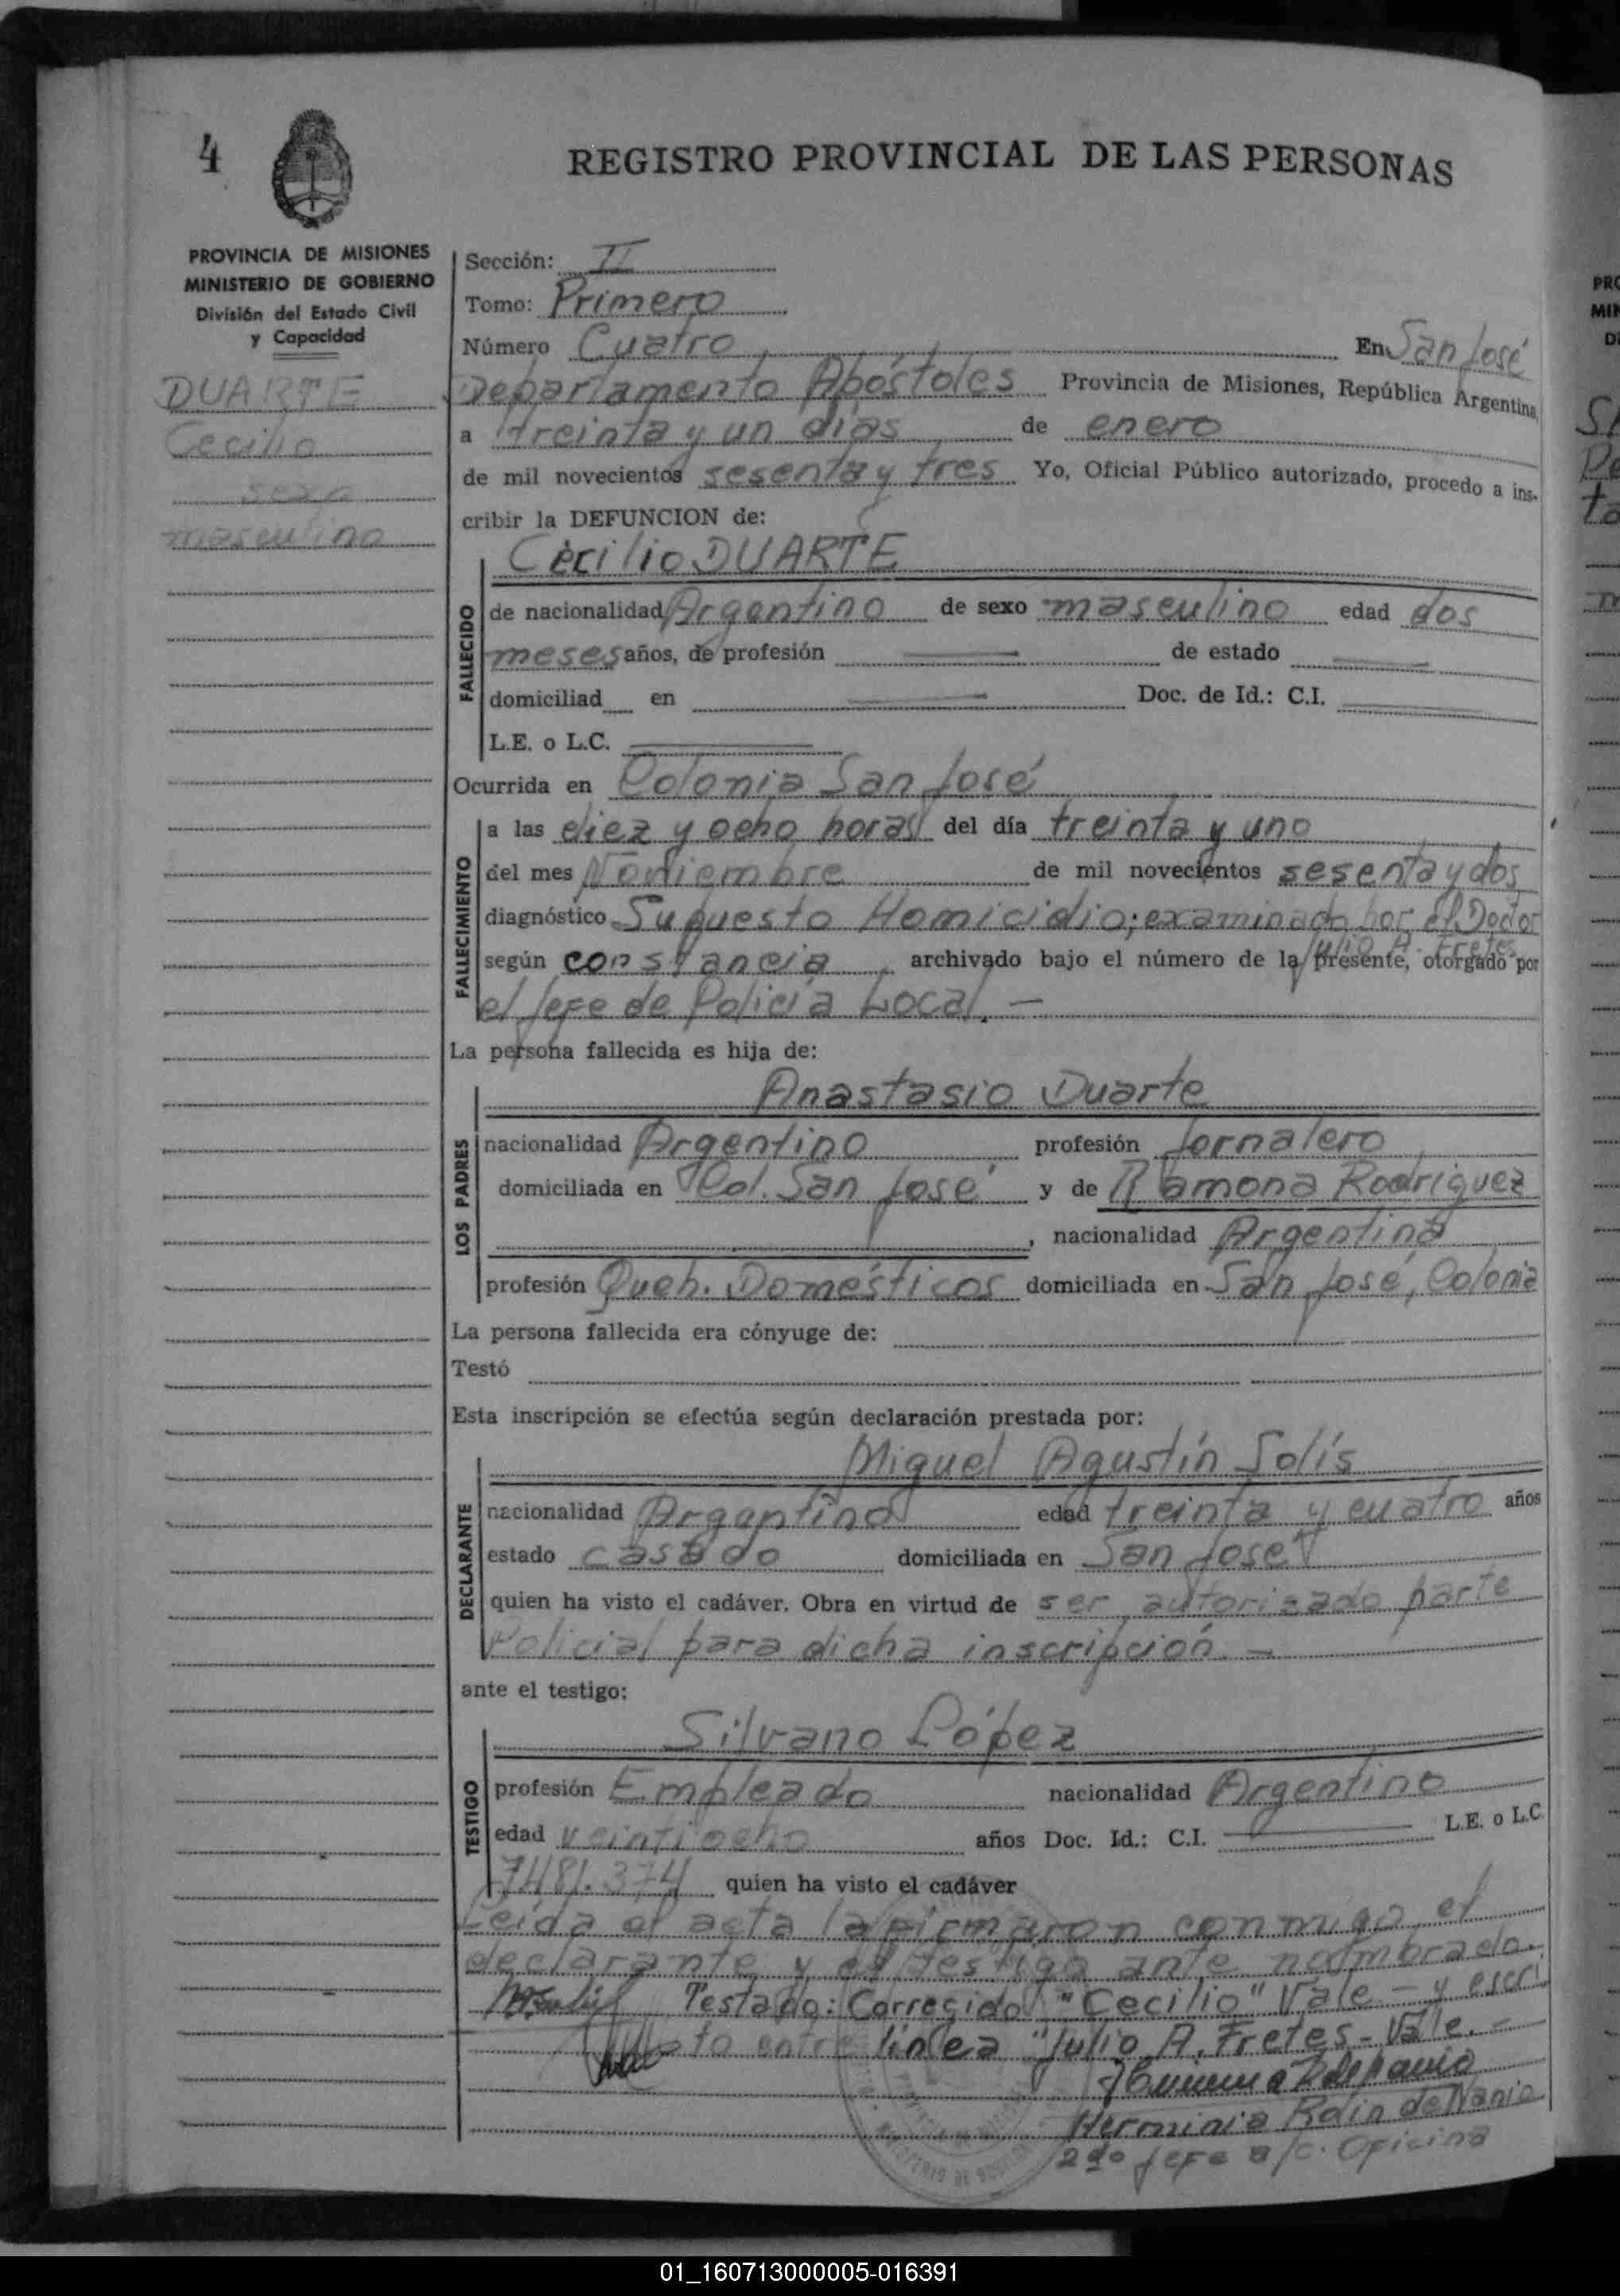 4
REGISTRO PROVINCIAL DE LAS PERSONAS
PROVINCIA DE MISIONES
MINISTERIO DE GOBIERNO
División del Estado Civil
y Capacidad
DUARTE
Cecilio
sexo
masculino
Sección: II
Tomo: Primero
Número Cuatro En San José
Departamento Apóstoles Provincia de Misiones, República Argentina,
a treinta y un días de enero
de mil novecientos sesenta y tres Yo, Oficial Público autorizado, procedo a ins-
cribir la DEFUNCION de:
Cecilio DUARTE
FALLECIDO
de nacionalidad Argentino de sexo masculino edad dos
meses años, de profesión — de estado —
domiciliad en — Doc. de Id.: C.I. —
L.E. o L.C. —
Ocurrida en Colonia San José
FALLECIMIENTO
a las diez y ocho horas del día treinta y uno
del mes Nodiembre de mil novecientos sesenta y dos
diagnóstico Supuesto Homicidio; examinado por el Doctor
Julio A. Fretes
según constancia, archivado bajo el número de la presente, otorgado por
el Jefe de Policía Local. —
La persona fallecida es hija de:
LOS PADRES
Anastasio Duarte
nacionalidad Argentino profesión Jornalero
domiciliada en Col. San José y de Ramona Rodriguez
, nacionalidad Argentina
profesión Queh. Domésticos domiciliada en San José, Colonia
La persona fallecida era cónyuge de:
Testó
Esta inscripción se efectúa según declaración prestada por:
DECLARANTE
Miguel Agustín Solís
nacionalidad Argentino edad treinta y cuatro años
estado casado domiciliada en San José
quien ha visto el cadáver. Obra en virtud de ser autorizado parte
Policial para dicha inscripción. —
ante el testigo:
TESTIGO
Silvano López
profesión Empleado nacionalidad Argentino
edad veintiocho años Doc. Id.: C.I. — L.E. o L.C.
7481.374 quien ha visto el cadáver
Leída el acta la firmaron conmigo, el
declarante y el testigo ante nombrado.
Testado: Corregido "Cecilio" Vale — y escri
to entre línea "Julio A. Fretes - Vale. —
Herminia Rdín de Nania
2do Jefe a/c. Oficina
01_160713000005-016391